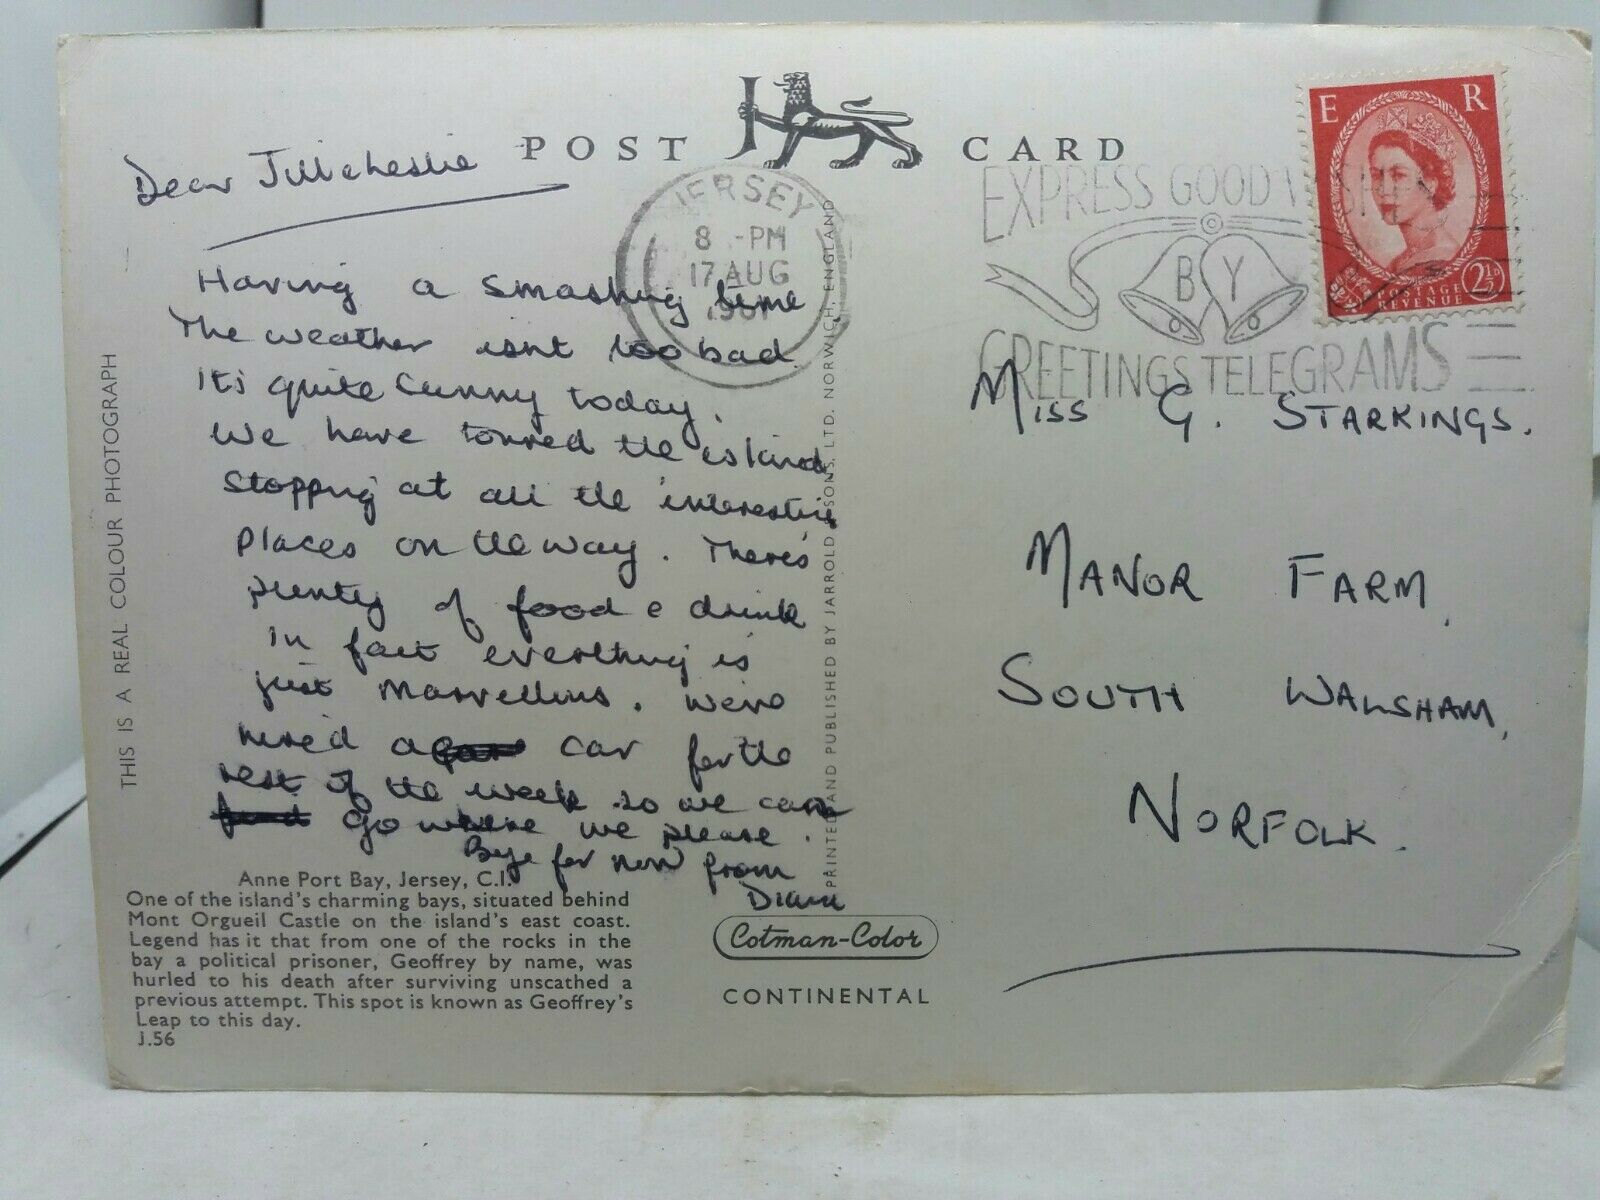 POST CARD
JERSEY
8 -PM
17 AUG
EXPRESS GOOD
BY
GREETINGS TELEGRAMS
E R
POSTAGE
REVENUE
2½D
Dear
Having a smashing time
The weather isnt too bad.
It's quite sunny today.
We have toured the island
stopping at all the interesting
places on the way. There's
plenty of food & drink
In fact everything is
just marvellous. We've
hired a car for the
rest of the week so we can
go where we please.
Bye for now from
Diana
MISS G. STARKINGS.
MANOR FARM,
SOUTH WALSHAM,
NORFOLK.
THIS IS A REAL COLOUR PHOTOGRAPH
PRINTED AND PUBLISHED BY JARROLD & SONS, LTD. NORWICH, ENGLAND
Anne Port Bay, Jersey, C.I.
One of the island's charming bays, situated behind
Mont Orgueil Castle on the island's east coast.
Legend has it that from one of the rocks in the
bay a political prisoner, Geoffrey by name, was
hurled to his death after surviving unscathed a
previous attempt. This spot is known as Geoffrey's
Leap to this day.
J.56
Cotman-Color
CONTINENTAL